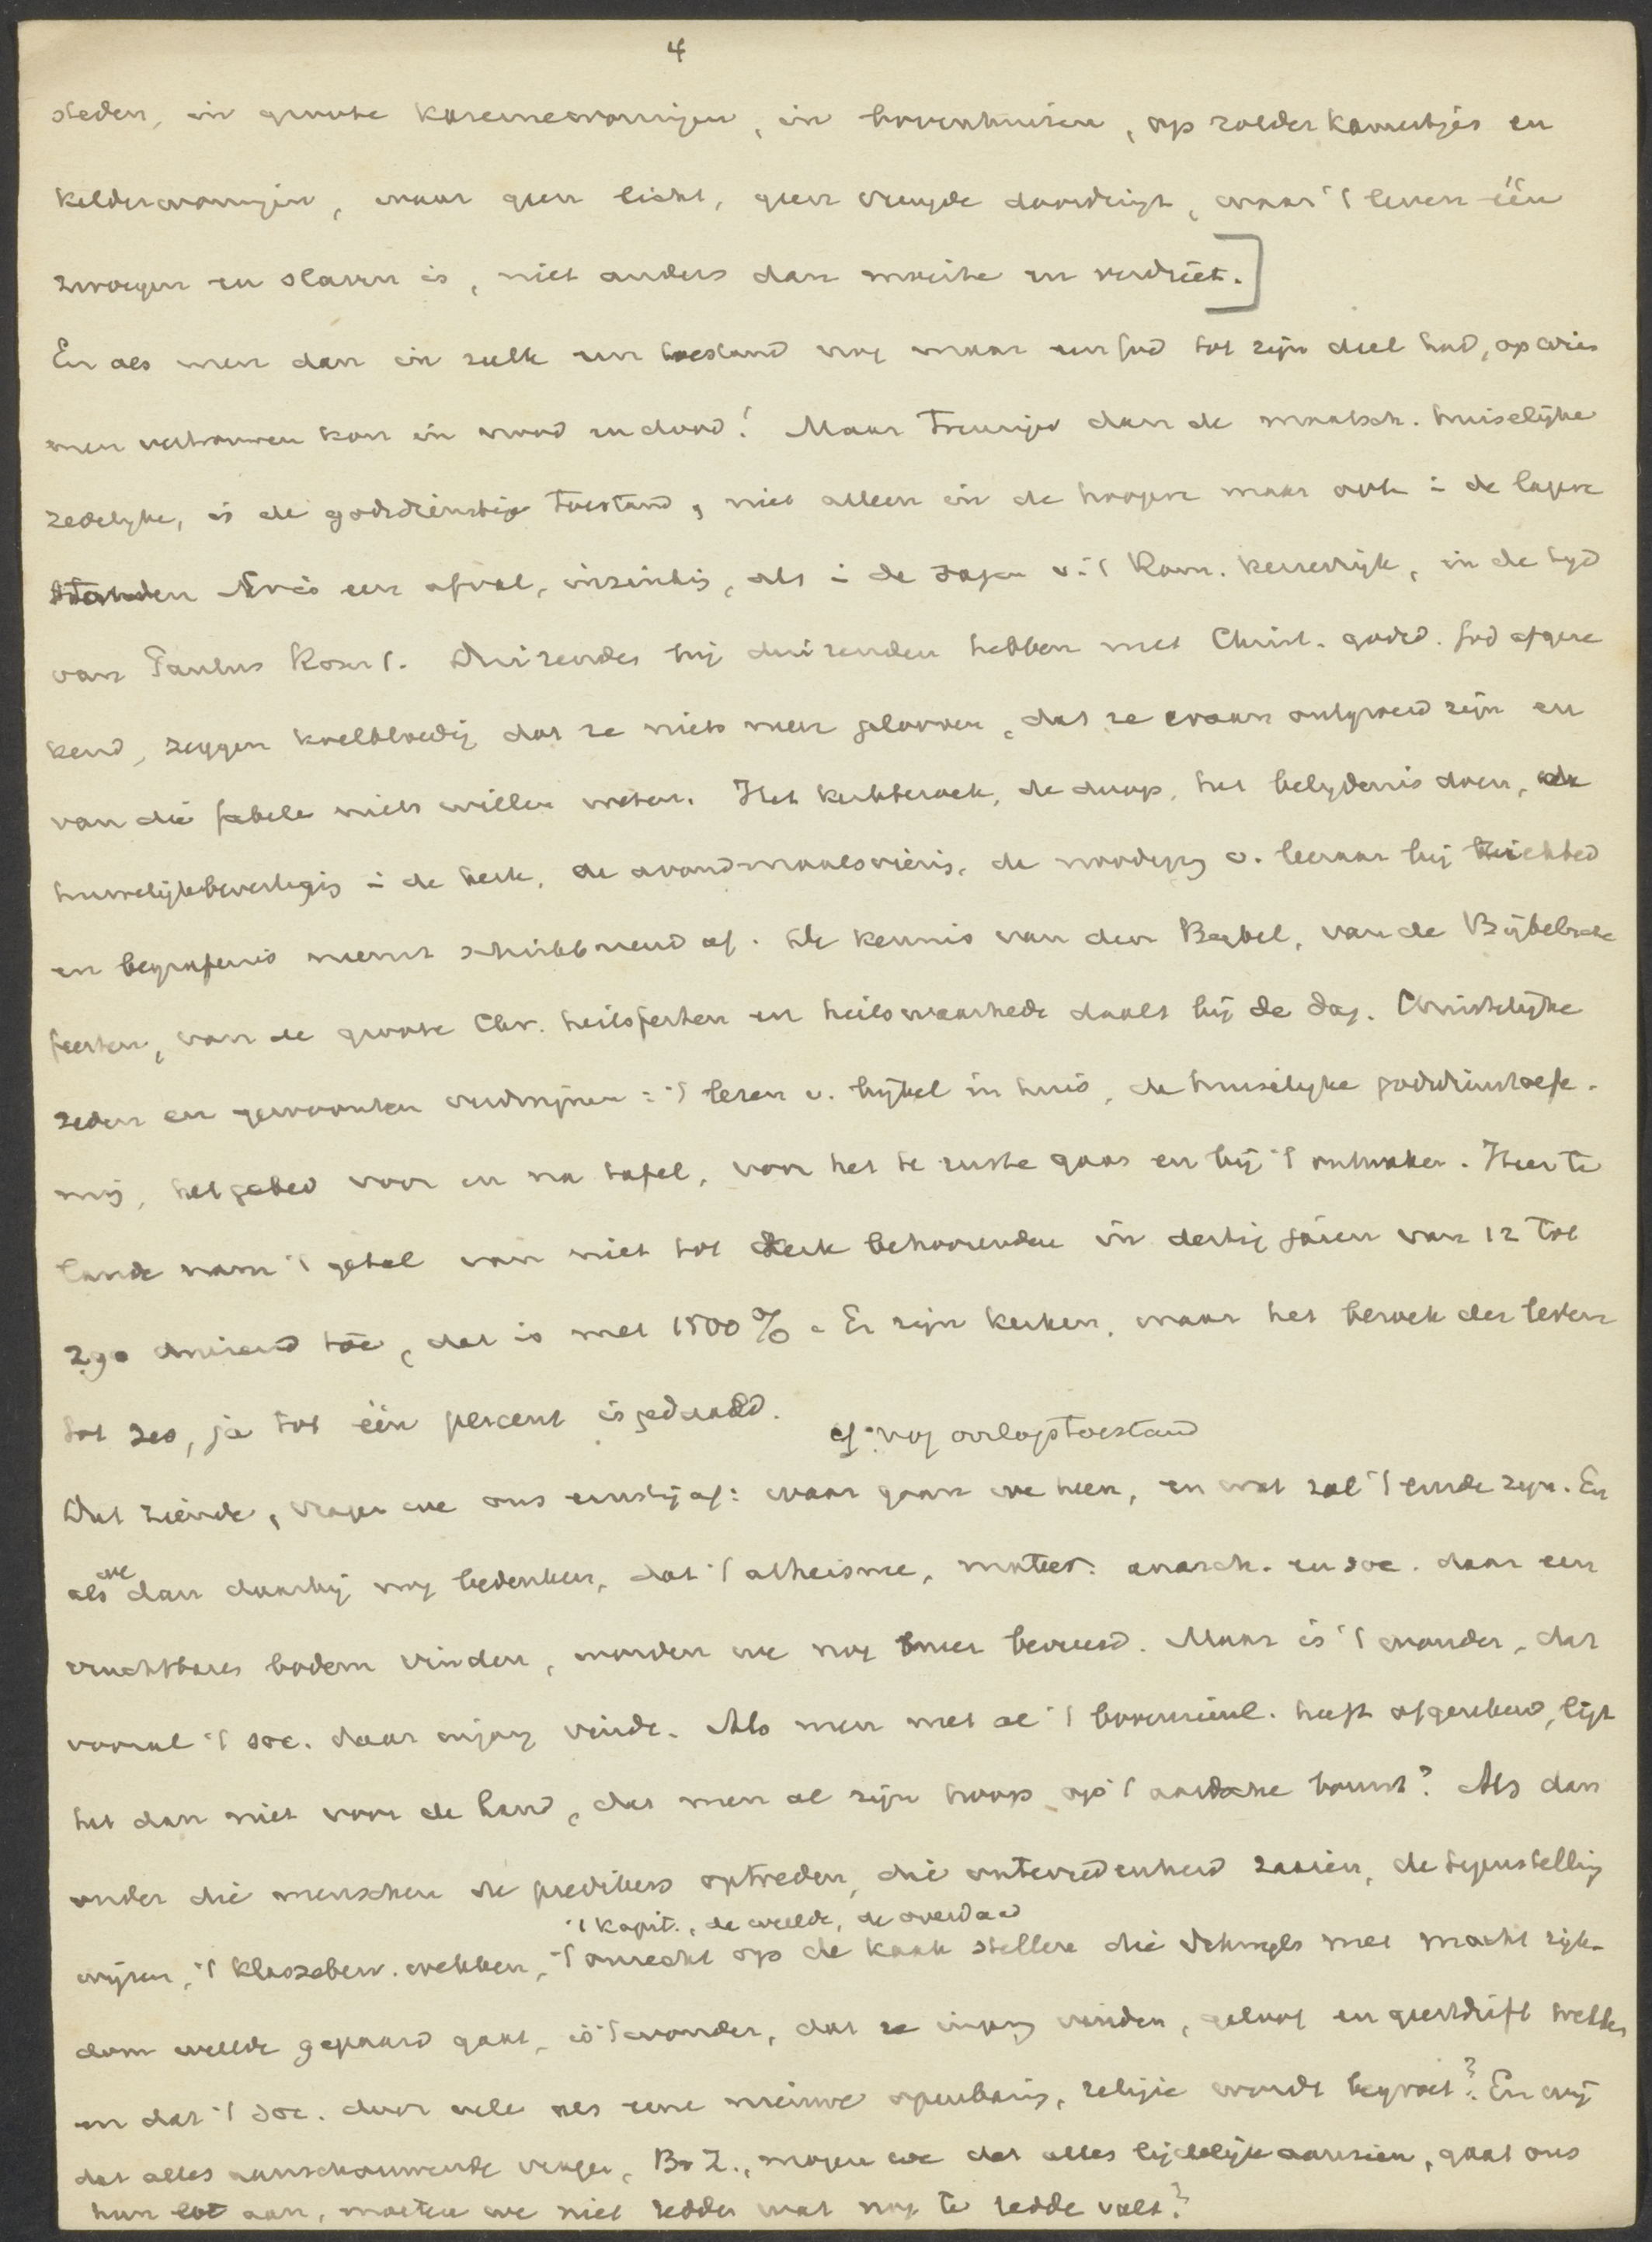 4
steden, in groote kazernewoningen, in bovenhuizen, op zolderkamertjes en
kelderwoningen, waar geen licht, geen vreugde doordringt, waar 't leven één
zwoegen en slaven is, niet anders dan moeite en verdriet.]
En als men dan in zulk een toestand nog maar een God tot zijn deel had, op wien
men vertrouwen kon in nood en dood! Maar treuriger dan de maatsch. huiselijke
zedelijke, is de godsdienstige toestand, niet alleen in de hoogere maar ook i de lagere
standen Er is een afval, inzinking, als i de dagen v. 't Rom. keizerrijk, in de tijd
van Paulus Rom 1. Duizenden bij duizenden hebben met Christ. godsd. God afgere
kend, zeggen koelbloedig dat ze niets meer gelooven, dat ze eraan ontgroeid zijn en
van die fabele niets wille weten. Het kerkbezoek, de doop, het belijdenis doen, de
huwelijksbevestigig i de kerk, de avondmaalsvierig, de noodigg v. leeraar bij ziekbed
en begrafenis neemt schrikb^arend af. De kennis van den Bijbel, van de Bijbelsche
feesten, van de groote Chr. heilsfeiten en heilswaarhede daalt bij de dag. Christelijke
zeden en gewoonten verdwijnen: 't lezen v. bijbel in huis, de huiselijke godsdienstoefe-
nig, het gebed voor en na tafel, voor het te ruste gaan en bij 't ontwaken. Hier te
lande nam 't getal van niet tot kerk behoorenden in dertig jaren van 12 tot
290 duizend toe, dat is met 1500 %. Er zijn kerken, waar het bezoek der leden
tot zes, ja tot één percent is gedaald.
cf. nog oorlogstoestand
Dat ziende, vragen we ons ernstig af: waar gaan we heen, en wat zal 't einde zijn. En
als we dan daarbij nog bedenken, dat 't atheisme, mater. anarch. en soc. daar een
vruchtbaren bodem vinden, worden we nog meer bevreesd. Maar is 't wonder, dat
vooral 't soc. daar ingang vindt. Als men met al 't bovenzinl. heeft afgerekend, ligt
het dan niet voor de hand, dat men al zijn hoop op 't aardsche bouwt? Als dan
onder die menschen de predikers optreden, die ontevredenheid zaaien, de tegenstellig
't kapit., de weelde, de overdaad
wijzen, 't klassebew. wekken, 't onrecht op de kaak stellen die dikwijls met macht rijk-
dom weelde gepaard gaat, is 't wonder, dat ze ingang vinden, geloof en geestdrift wekken
en dat 't soc. door vele als eene nieuwe openbarig, religie wordt begroet? En wij
dat alles aanschouwende vragen, Br Z., mogen we dat alles lijdelijk aanzien, gaat ons
hun lot aan, moeten we niet redden wat nog te redde valt?